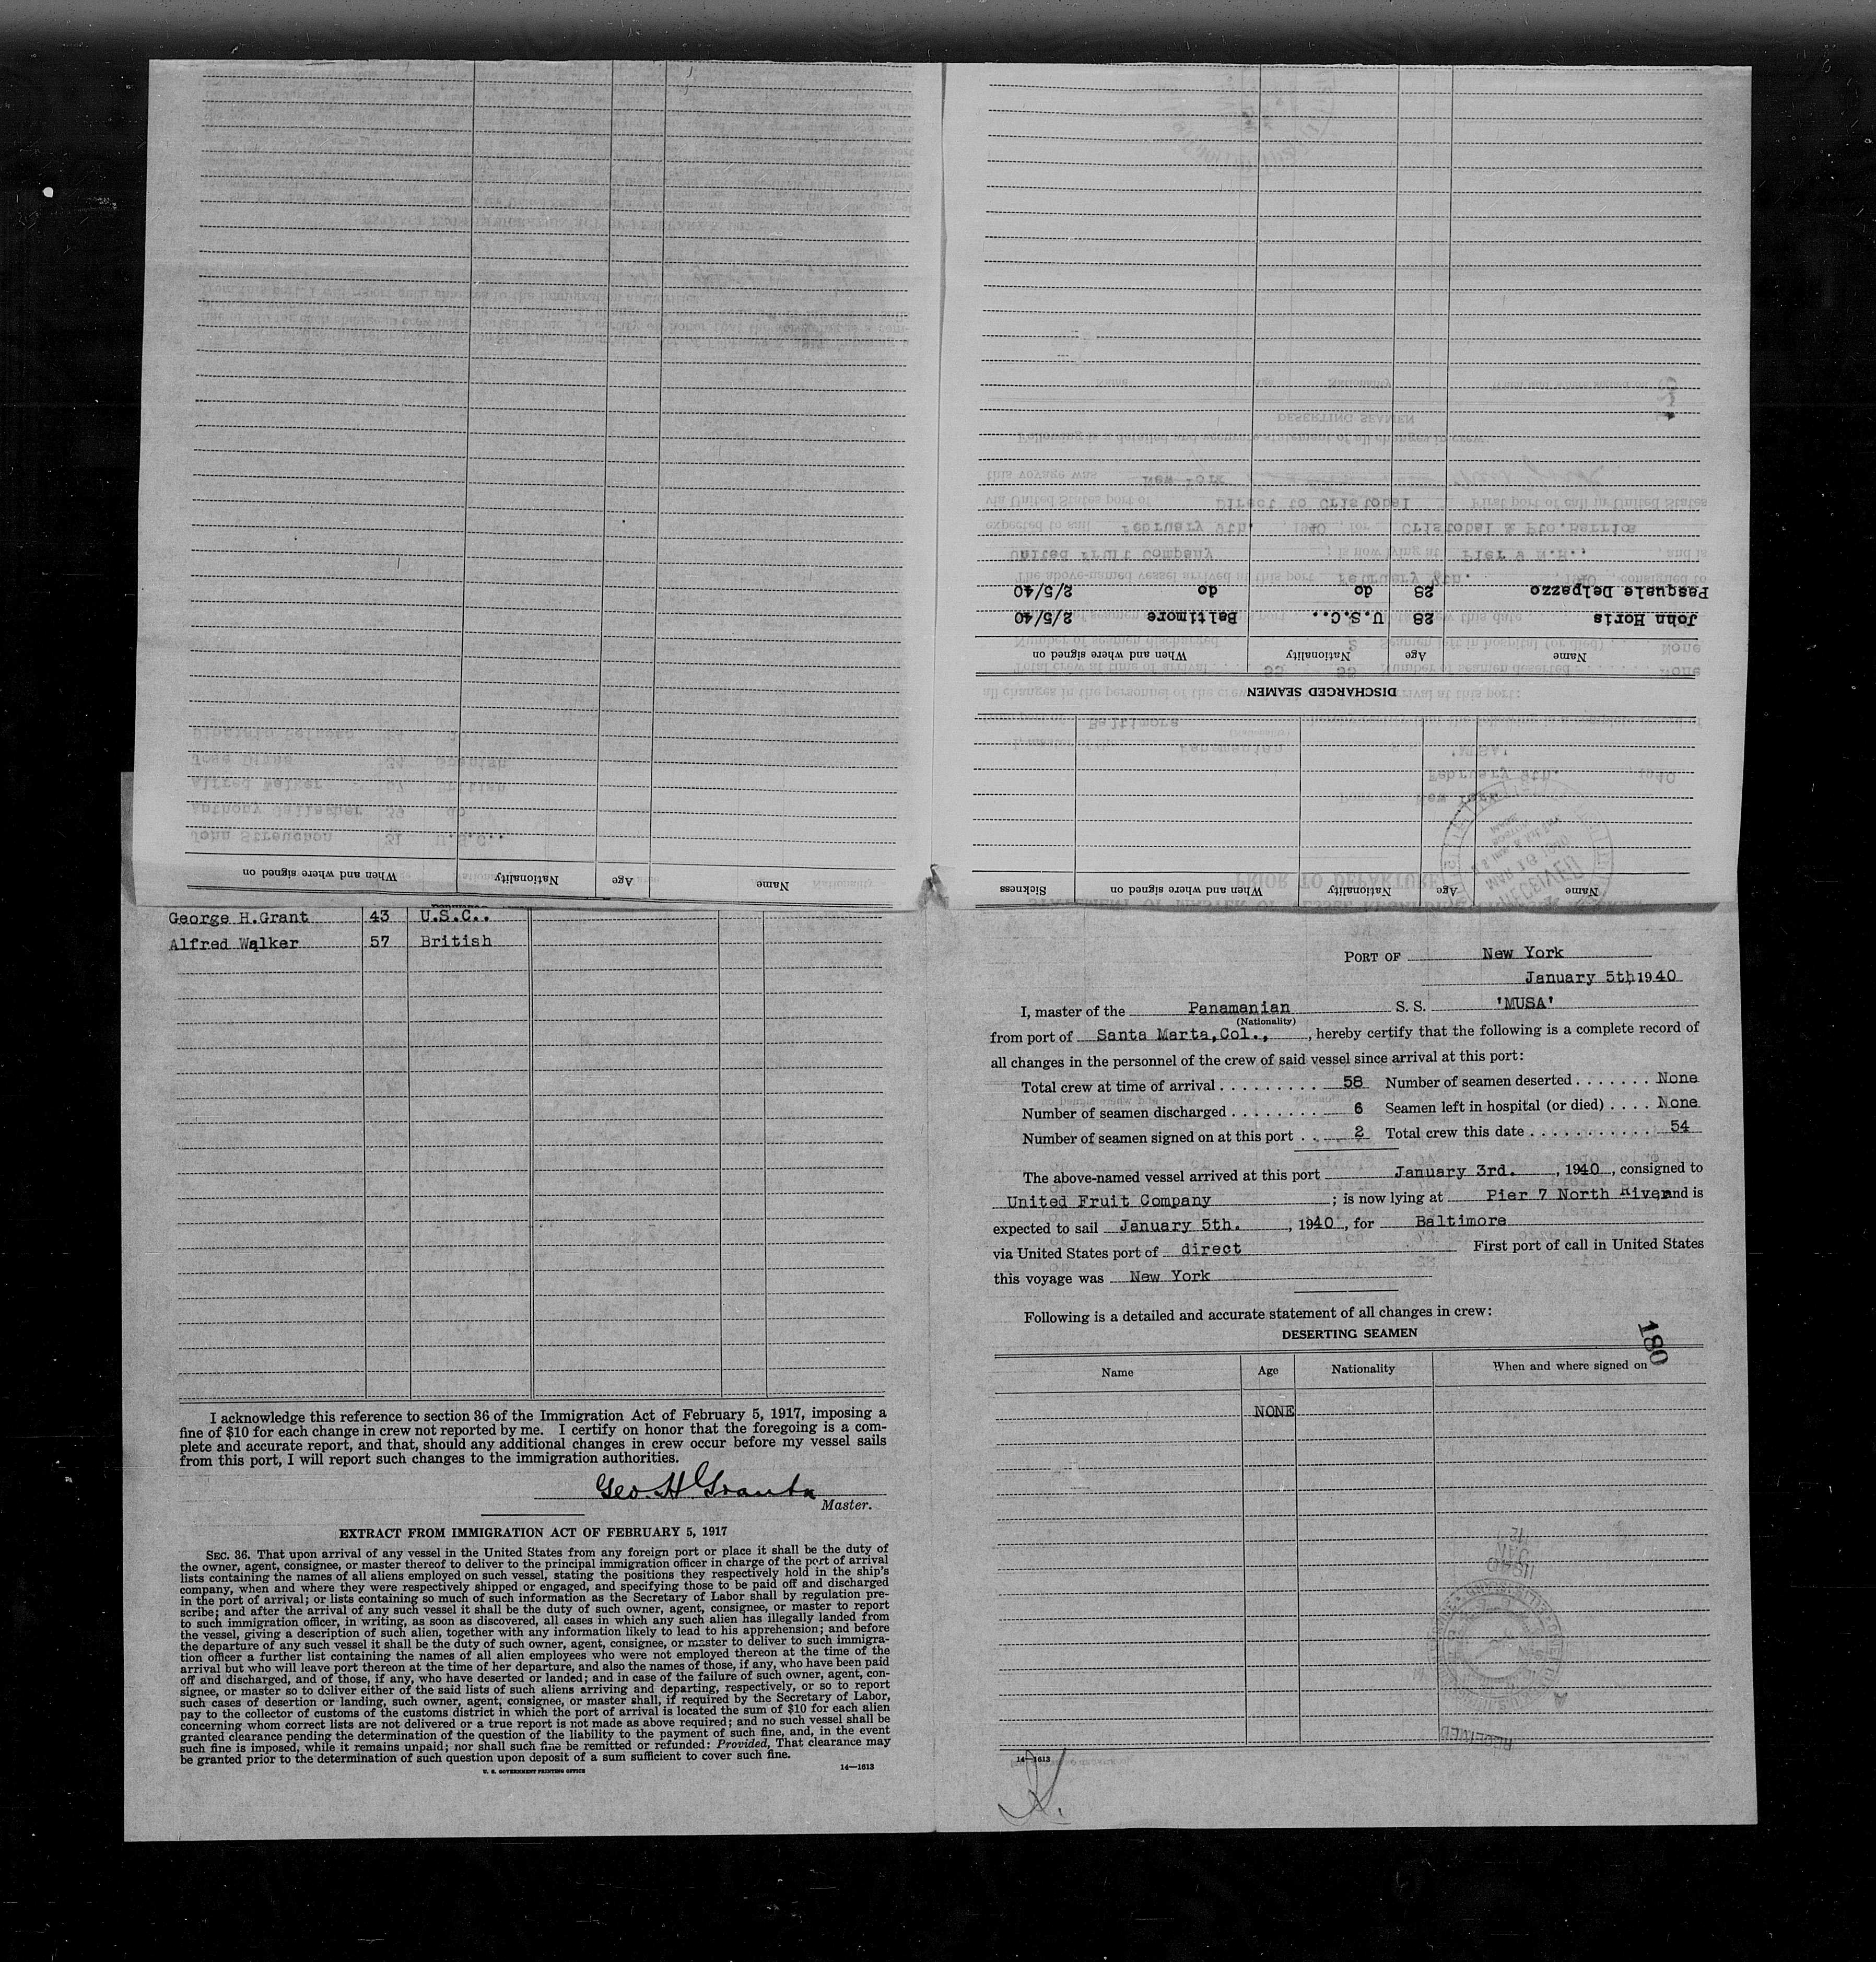 Name Age Nationality When and where signed on Sickness
DISCHARGED SEAMEN
Name Age Nationality When and where signed on
John Horis 28 U.S.C.. Baltimore 2/5/40
Pasquale Delpazzo 28 do do 2/5/40
Name Age Nationality When and where signed on
RECEIVED
MAR 16 1940
George H.Grant 43 U.S.C..
Alfred Walker 57 British
I acknowledge this reference to section 36 of the Immigration Act of February 5, 1917, imposing a
fine of $10 for each change in crew not reported by me. I certify on honor that the foregoing is a com-
plete and accurate report, and that, should any additional changes in crew occur before my vessel sails
from this port, I will report such changes to the immigration authorities.
Geo. H Grant
Master.
EXTRACT FROM IMMIGRATION ACT OF FEBRUARY 5, 1917
SEC. 36. That upon arrival of any vessel in the United States from any foreign port or place it shall be the duty of
the owner, agent, consignee, or master thereof to deliver to the principal immigration officer in charge of the port of arrival
lists containing the names of all aliens employed on such vessel, stating the positions they respectively hold in the ship's
company, when and where they were respectively shipped or engaged, and specifying those to be paid off and discharged
in the port of arrival; or lists containing so much of such information as the Secretary of Labor shall by regulation pre-
scribe; and after the arrival of any such vessel it shall be the duty of such owner, agent, consignee, or master to report
to such immigration officer, in writing, as soon as discovered, all cases in which any such alien has illegally landed from
the vessel, giving a description of such alien, together with any information likely to lead to his apprehension; and before
the departure of any such vessel it shall be the duty of such owner, agent, consignee, or master to deliver to such immigra-
tion officer a further list containing the names of all alien employees who were not employed thereon at the time of the
arrival but who will leave port thereon at the time of her departure, and also the names of those, if any, who have been paid
off and discharged, and of those, if any, who have deserted or landed; and in case of the failure of such owner, agent, con-
signee, or master so to deliver either of the said lists of such aliens arriving and departing, respectively, or so to report
such cases of desertion or landing, such owner, agent, consignee, or master shall, if required by the Secretary of Labor,
pay to the collector of customs of the customs district in which the port of arrival is located the sum of $10 for each alien
concerning whom correct lists are not delivered or a true report is not made as above required; and no such vessel shall be
granted clearance pending the determination of the question of the liability to the payment of such fine, and, in the event
such fine is imposed, while it remains unpaid; nor shall such fine be remitted or refunded: Provided, That clearance may
be granted prior to the determination of such question upon deposit of a sum sufficient to cover such fine.
U. S. GOVERNMENT PRINTING OFFICE 14—1613
PORT OF New York
January 5th, 1940
I, master of the Panamanian S. S. 'MUSA'
(Nationality)
from port of Santa Marta,Col., , hereby certify that the following is a complete record of
all changes in the personnel of the crew of said vessel since arrival at this port:
Total crew at time of arrival . . . . . . . . . . 58 Number of seamen deserted . . . . . . . None
Number of seamen discharged . . . . . . . . . 6 Seamen left in hospital (or died) . . . . None
Number of seamen signed on at this port . . 2 Total crew this date . . . . . . . . . . . . 54
The above-named vessel arrived at this port January 3rd. , 1940 , consigned to
United Fruit Company ; is now lying at Pier 7 North River, and is
expected to sail January 5th. , 1940 , for Baltimore
via United States port of direct First port of call in United States
this voyage was New York
Following is a detailed and accurate statement of all changes in crew:
DESERTING SEAMEN
180
Name Age Nationality When and where signed on
NONE
RECEIVED
14—1613